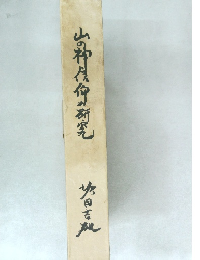 山の神信仰の研究
堀田吉雄